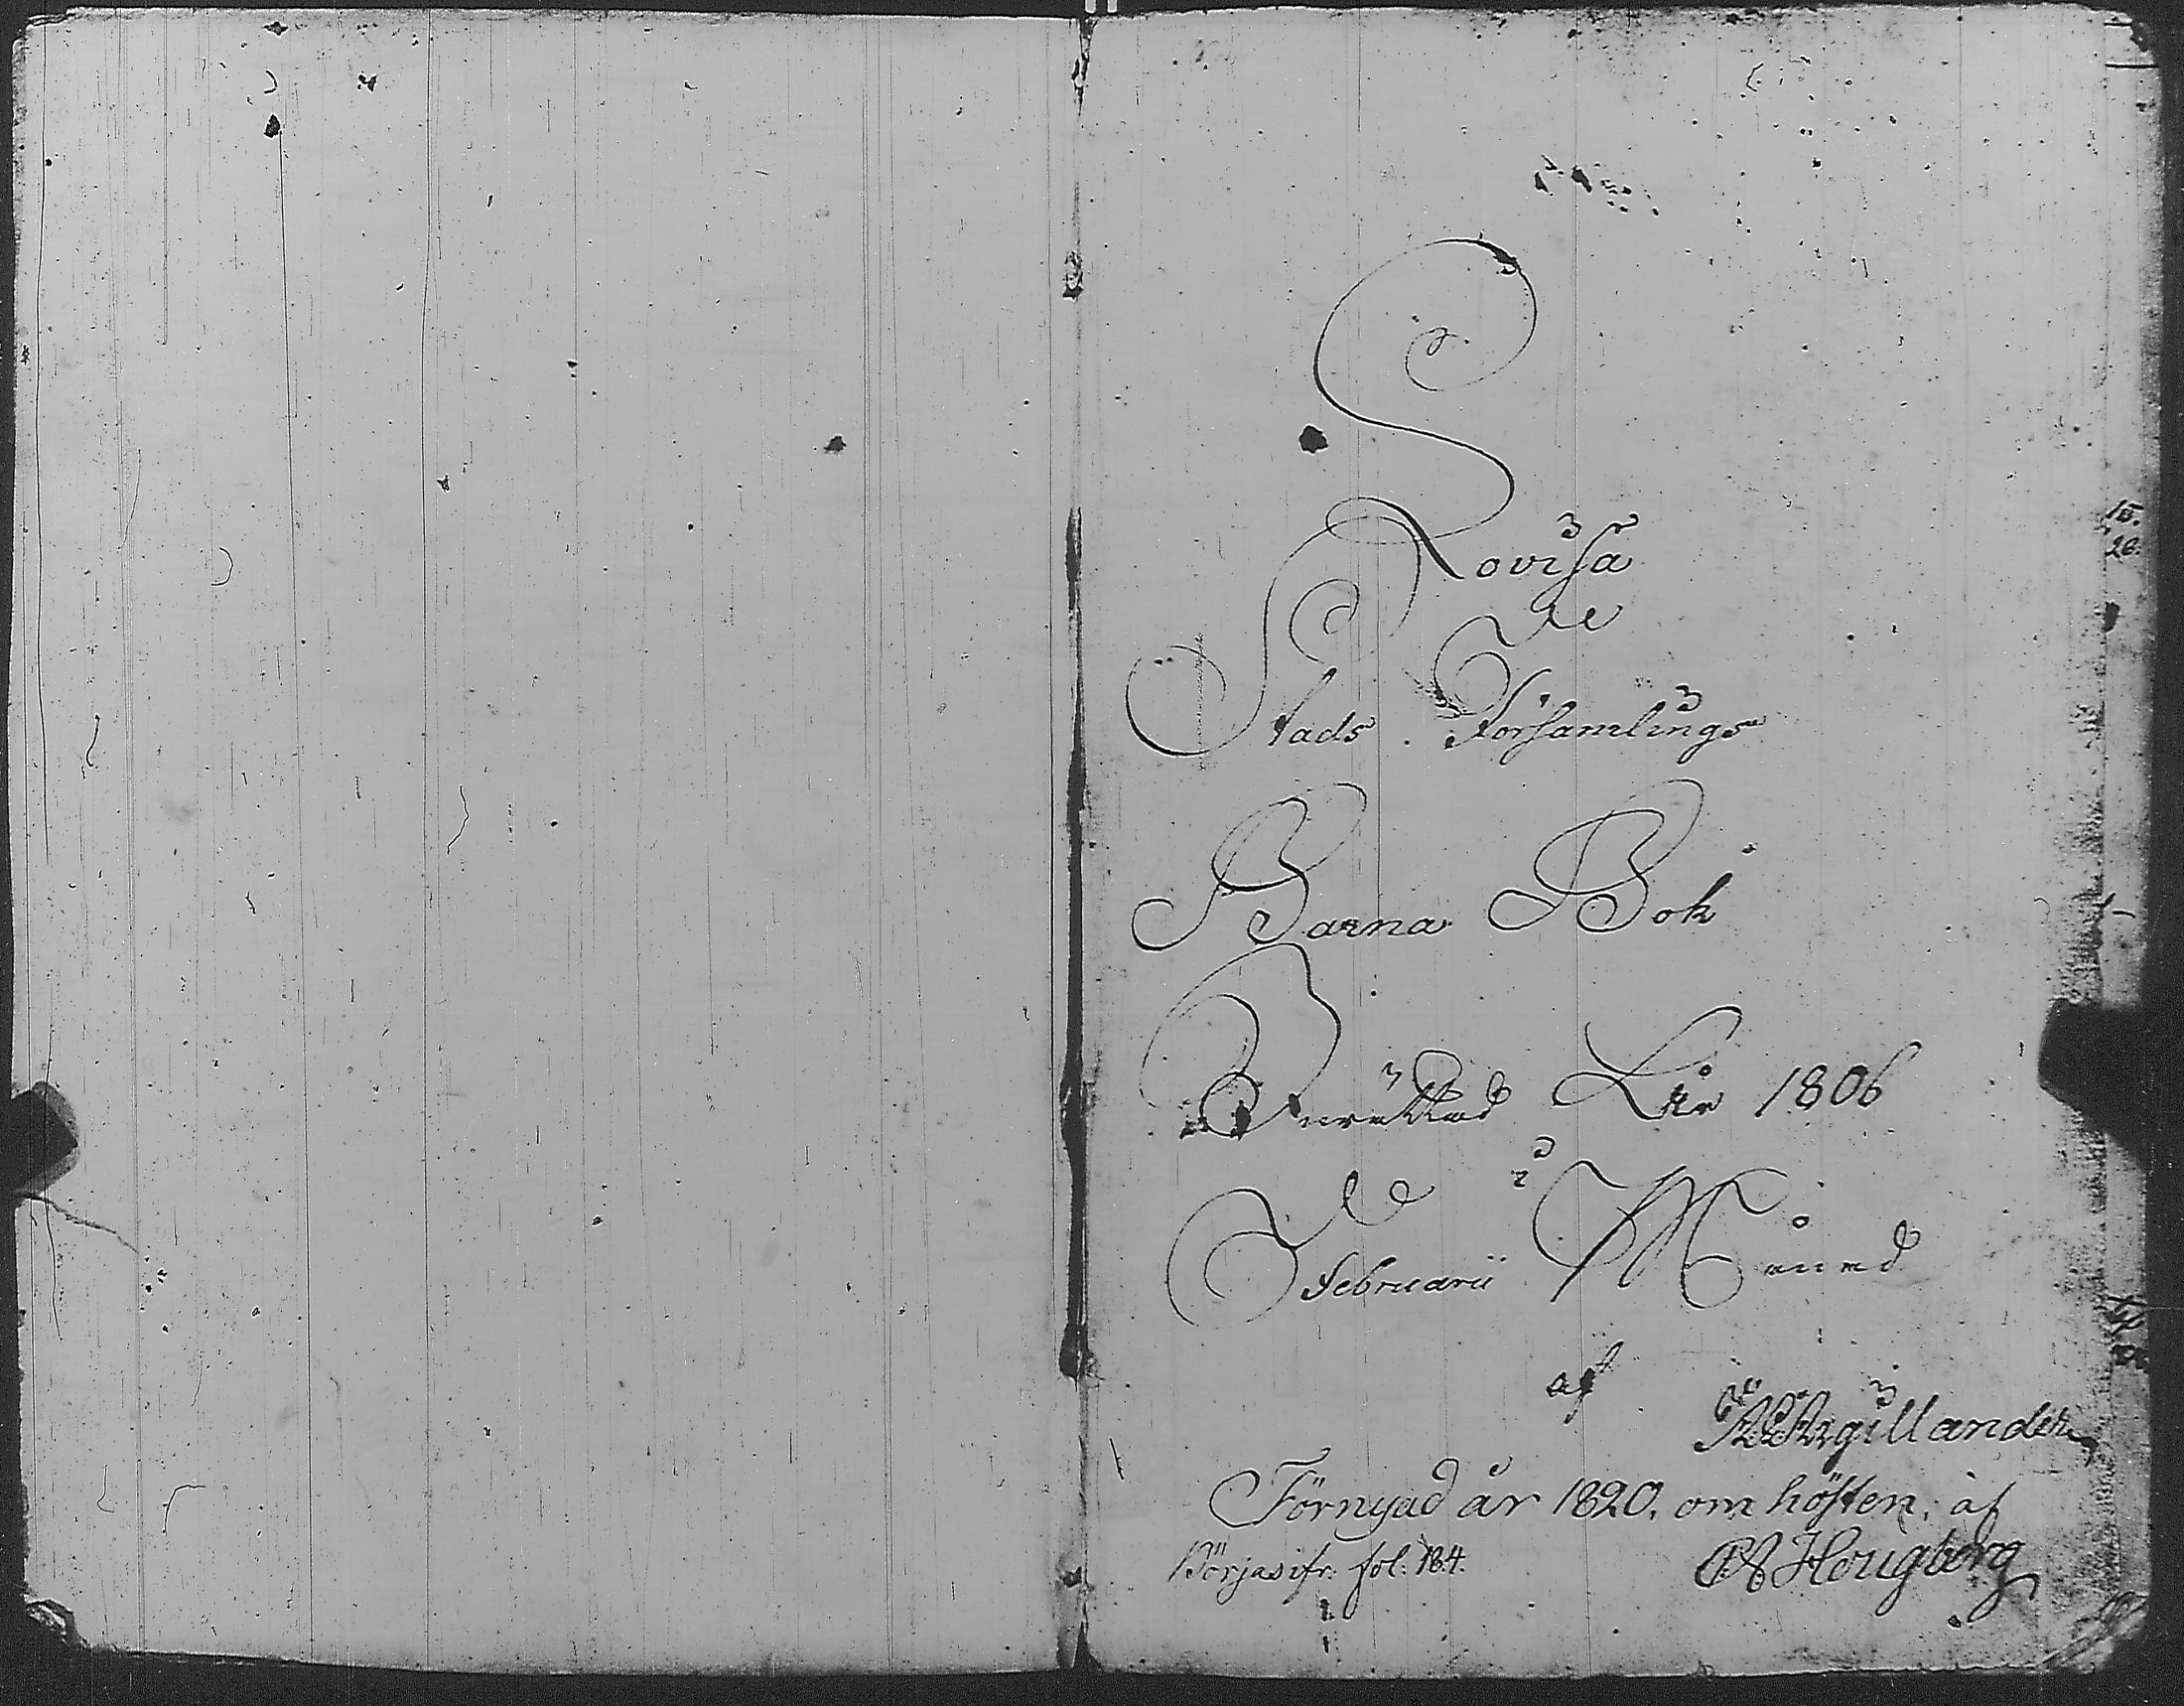 Lovisa
Stads Församlings
Barna Bok
Inrättad År 1806
i
Februarii Månad
af
Argillander
Förnyad år 1820. om hösten, af
Börjas ifr. fol: 184.
Hougberg
15.
26.